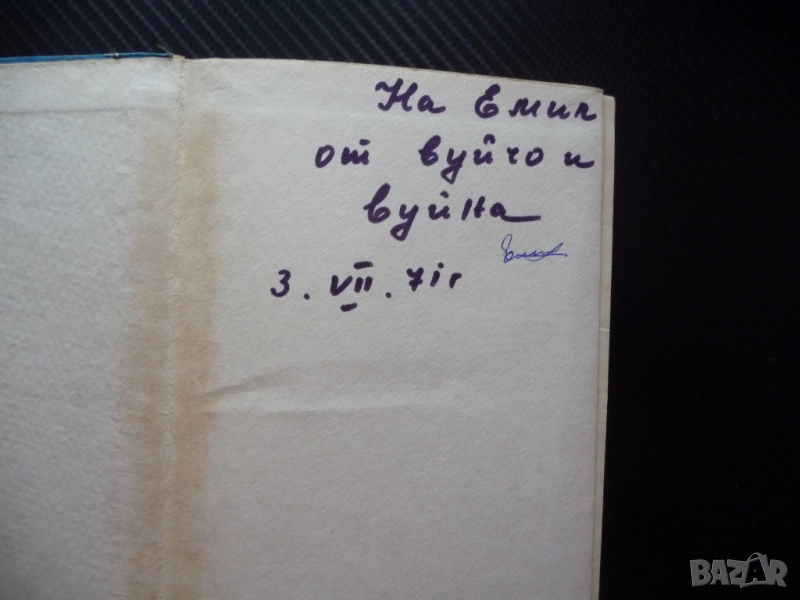 На Емил
от вуйчо и
вуйна
3. VII. 71г
BAZAR